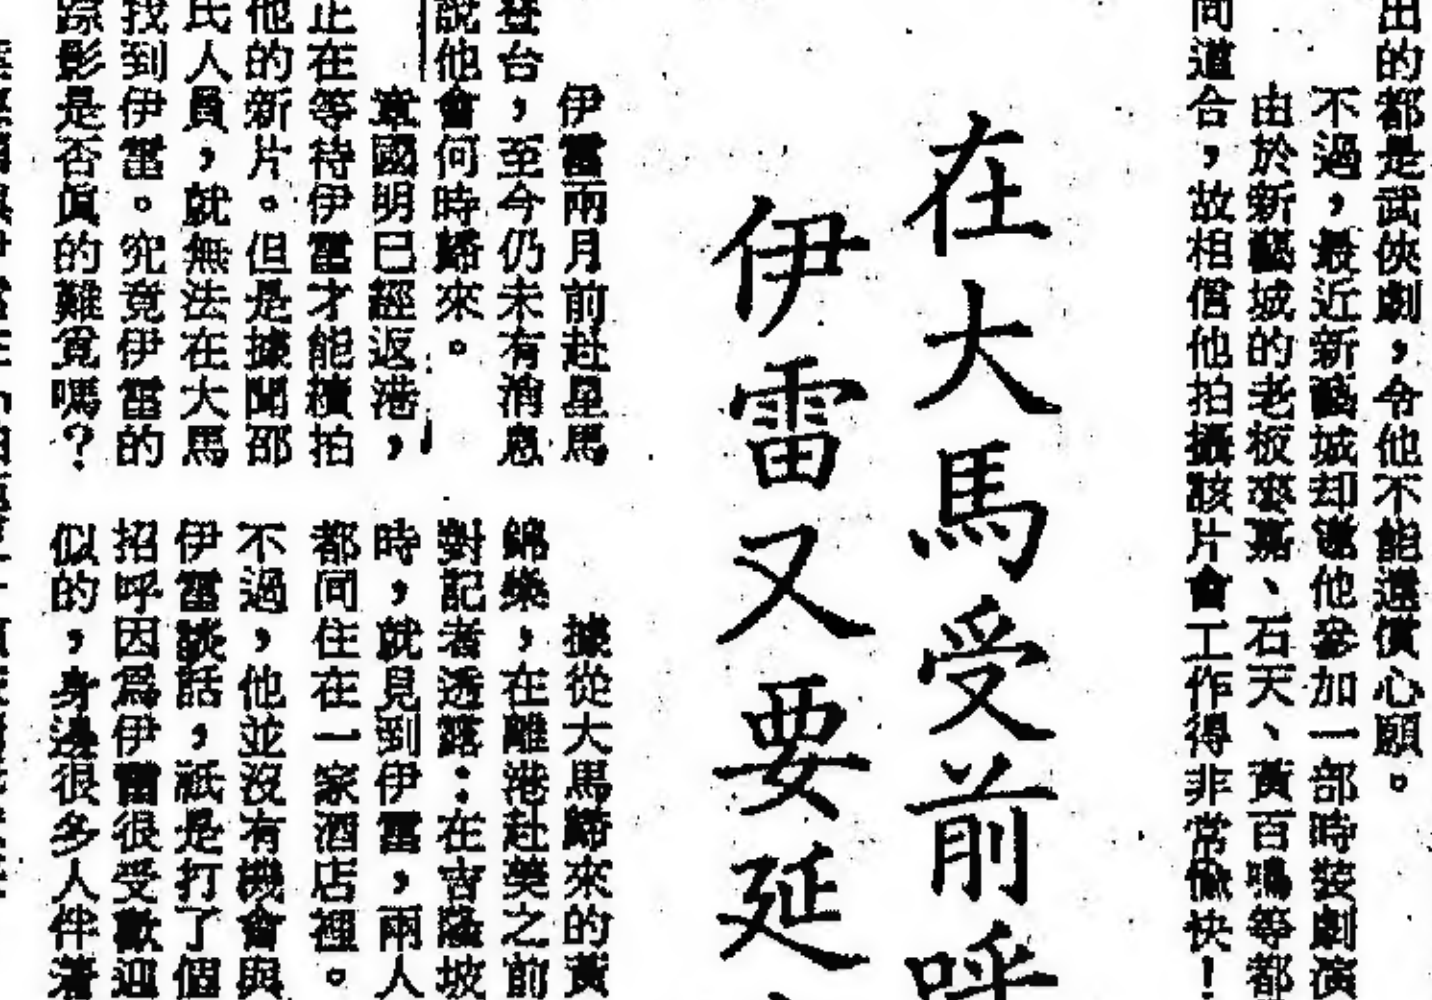 出的都是武俠劇，令他不能還償心願。
不過，最近新藝城却邀他參加一部時裝劇演
由於新藝城的老板麥嘉、石天、黃百鳴等都
同道合，故相信他拍攝該片會工作得非常愉快！
在大馬受前呼
伊雷又要延
伊雷兩月前赴星馬
登台，至今仍未有消息
說他會何時歸來。
章國明已經返港，
正在等待伊雷才能續拍
他的新片。但是據聞邵
氏人員，就無法在大馬
找到伊雷。究竟伊雷的
踪影是否眞的難覓嗎？
據從大馬歸來的黃
錦燊，在離港赴英之前
對記者透露：在吉隆坡
時，就見到伊雷，兩人
都同住在一家酒店裡。
不過，他並沒有機會與
伊雷談話，祇是打了個
招呼因爲伊雷很受歡迎
似的，身邊很多人伴着